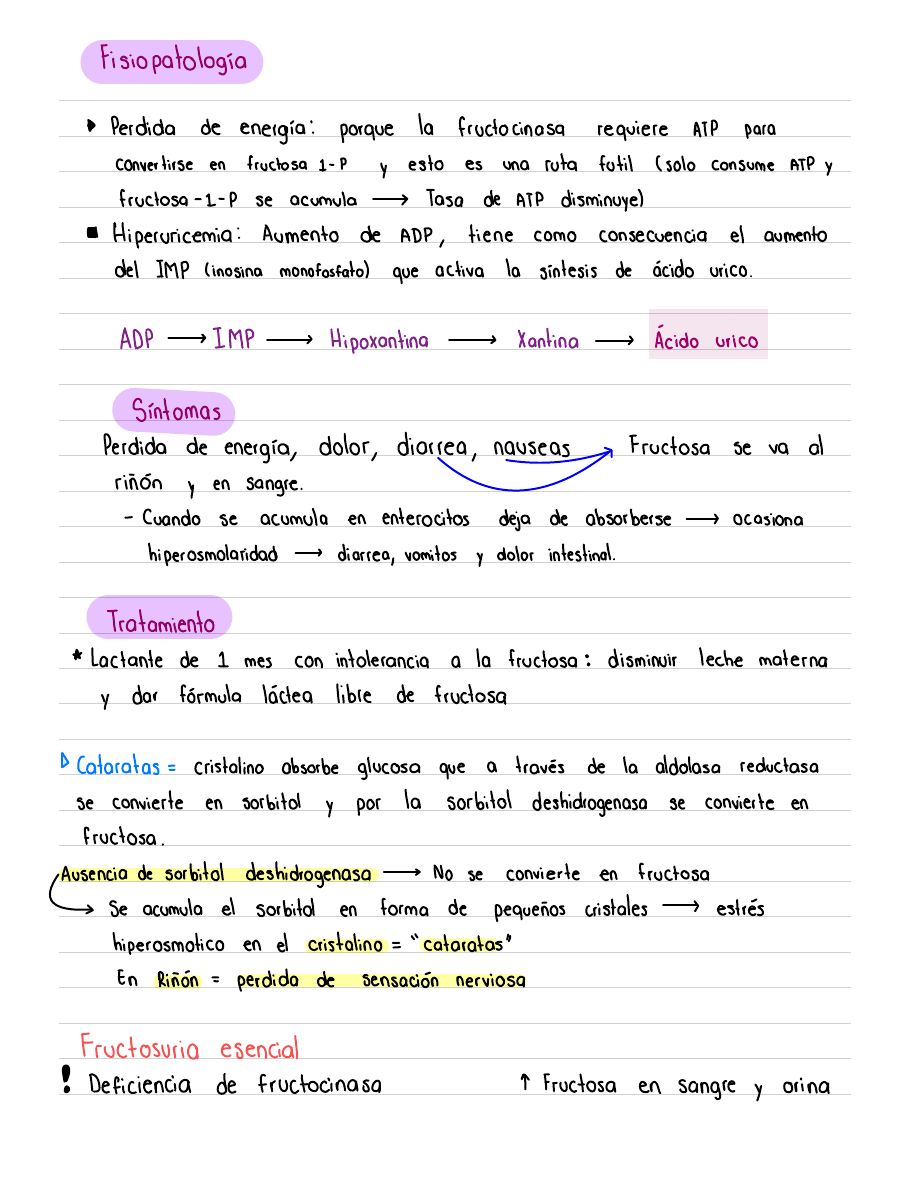 Fisiopatología
▸ Perdida de energía: porque la fructocinasa requiere ATP para
convertirse en fructosa 1-P y esto es una ruta futil (solo consume ATP y
fructosa-1-P se acumula ⟶ Tasa de ATP disminuye)
▪ Hiperuricemia: Aumento de ADP, tiene como consecuencia el aumento
del IMP (inosina monofosfato) que activa la síntesis de ácido urico.
ADP ⟶ IMP ⟶ Hipoxantina ⟶ Xantina ⟶ Ácido urico
Síntomas
Perdida de energía, dolor, diarrea, nauseas Fructosa se va al
riñón y en sangre.
- Cuando se acumula en enterocitos deja de absorberse ⟶ ocasiona
hiperosmolaridad ⟶ diarrea, vomitos y dolor intestinal.
Tratamiento
* Lactante de 1 mes con intolerancia a la fructosa: disminuir leche materna
y dar fórmula láctea libre de fructosa
▷ Cataratas = cristalino absorbe glucosa que a través de la aldolasa reductasa
se convierte en sorbitol y por la sorbitol deshidrogenasa se convierte en
fructosa.
Ausencia de sorbitol deshidrogenasa ⟶ No se convierte en fructosa
Se acumula el sorbitol en forma de pequeños cristales ⟶ estrés
hiperosmotico en el cristalino = "cataratas"
En Riñón = perdida de sensación nerviosa
Fructosuria esencial
! Deficiencia de fructocinasa ↑ Fructosa en sangre y orina